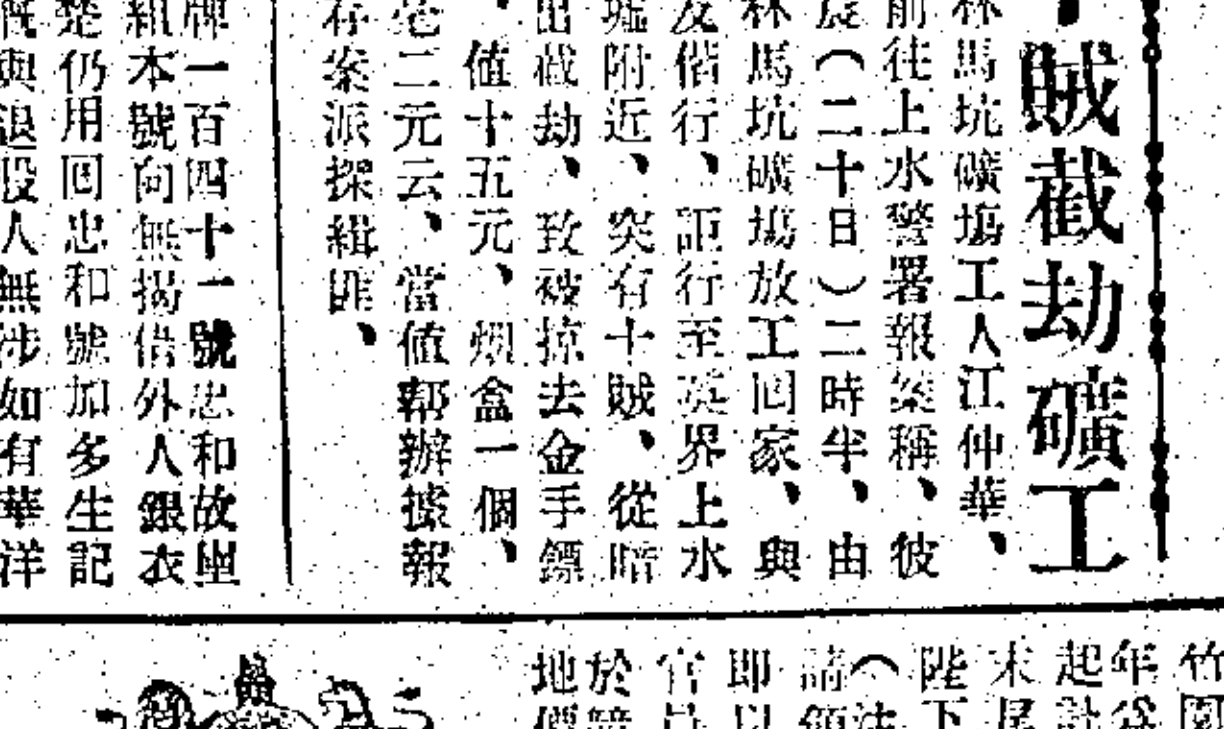 賊截劫礦工
林馬坑礦塲工人江仲華、
前往上水警署報案稱、彼
晨（二十日）二時半、由
林馬坑礦塲放工囘家、與
友偕行、詎行至英界上水
墟附近、突有十賊、從暗
出截劫、致被掠去金手鏢
、值十五元、烟盒一個、
二元云、當值幫辦據報
存案派探緝匪、
牌一百四十一號忠和故壐
組本號向無揭借外人銀衣
楚仍用囘忠和號加多生記
概與退股人無涉如有華洋
竹園
年
起計
末尾
陛下
（法
請領
即以
官
於
地價